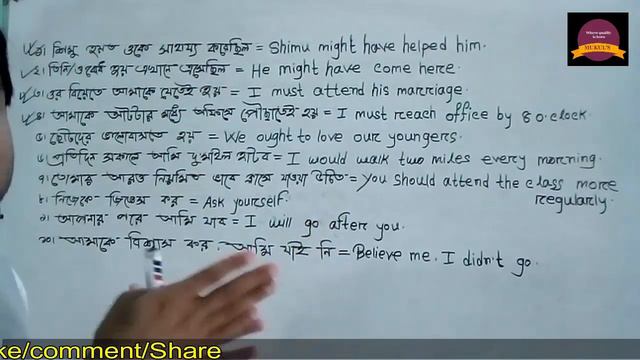 ১। শিমু হয়ত ওকে সাহায্য করেছিল = Shimu might have helped him.
২। তিনি হয় এখানে এসেছিল = He might have come here.
৩। ওর বিয়েতে আমাকে যেতেই হবে = I must attend his marriage.
৪। আমাকে আটটার মধ্যে অফিসে পৌঁছাতেই হবে = I must reach office by 8 o.clock.
৫। ছোটদের ভালোবাসতে হয় = We ought to love our youngers.
৬। প্রতিদিন সকালে আমি দু মাইল হাটব = I would walk two miles every morning.
৭। তোমার আরও নিয়মিত ভাবে ক্লাসে যাওয়া উচিত = You should attend the class more
regularly.
৮। নিজেকে জিজ্ঞেস কর = Ask yourself.
৯। আপনার পরে আমি যাব = I will go after you.
১০। আমাকে বিশ্বাস কর, আমি যাই নি = Believe me, I didn't go.
Where quality is born
MUKUL'S
ke/comment/Share